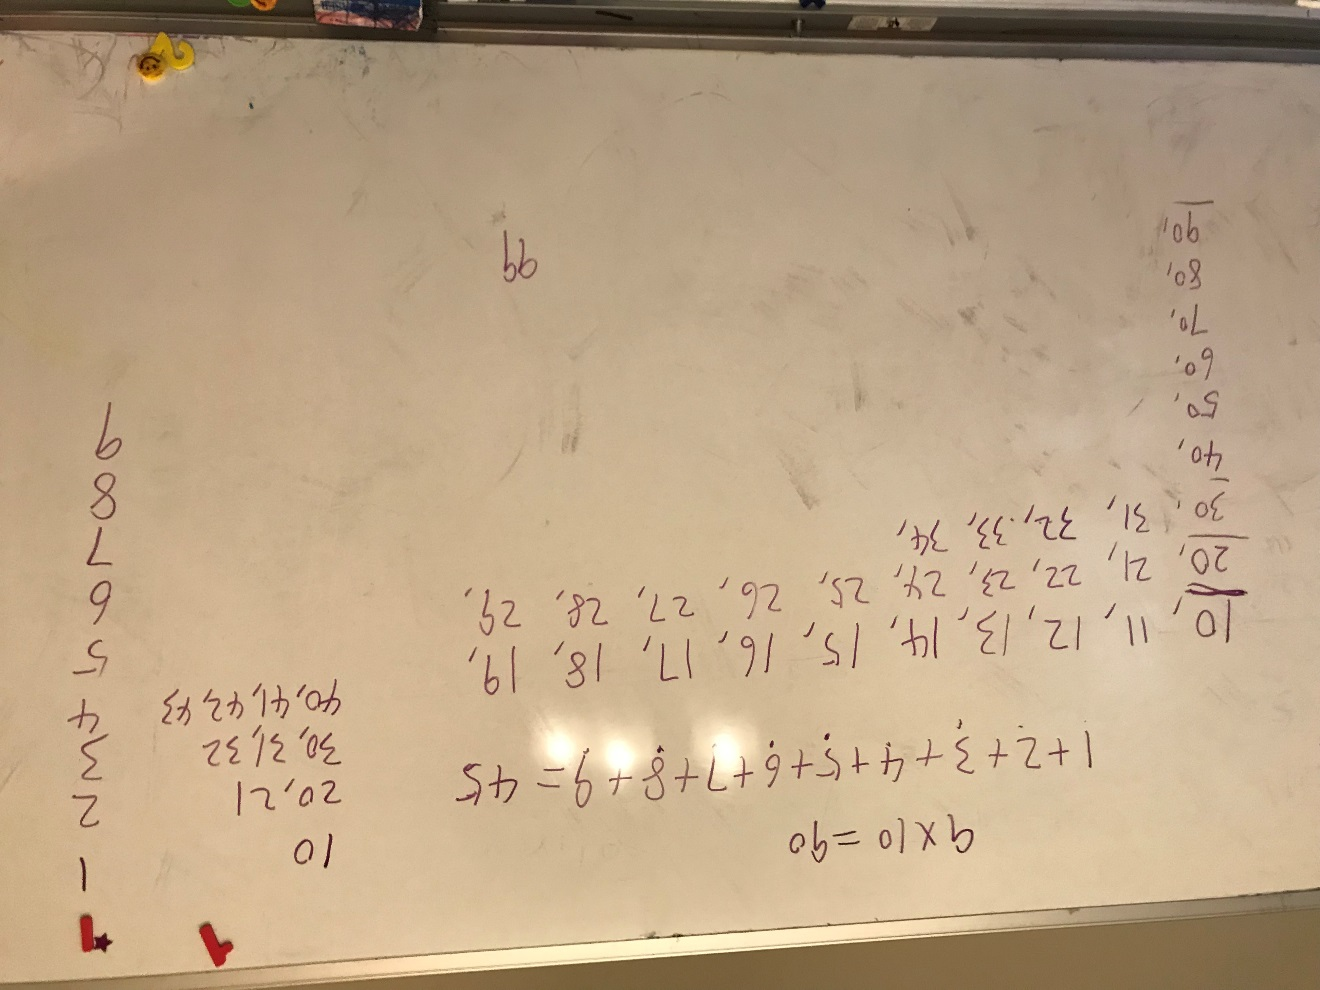 9 x 10 = 90
1+2+3+4+5+6+7+8+9= 45
10, 11, 12, 13, 14, 15, 16, 17, 18, 19,
20, 21, 22, 23, 24, 25, 26, 27, 28, 29,
30, 31, 32, 33, 34,
40,
50,
60,
70,
80,
90,
99
10
20, 21
30, 31, 32
40, 41, 42, 43
1
2
3
4
5
6
7
8
9